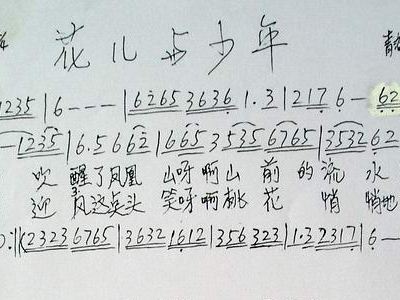 花儿与少年
青
1235 | 6 - - - | 6265 3636 1·3 | 217 6 - 62
- 1235 | 6·5 6 62 | 1665 3535 6765 | 3532 62
吹 醒了凤凰 山呀啊山 前 的流 水
迎 风这点头 笑呀啊桃 花 悄 悄地
:‖(2323 6765 | 3632 1612 | 356 323 | 1·3 2317 | 6 -